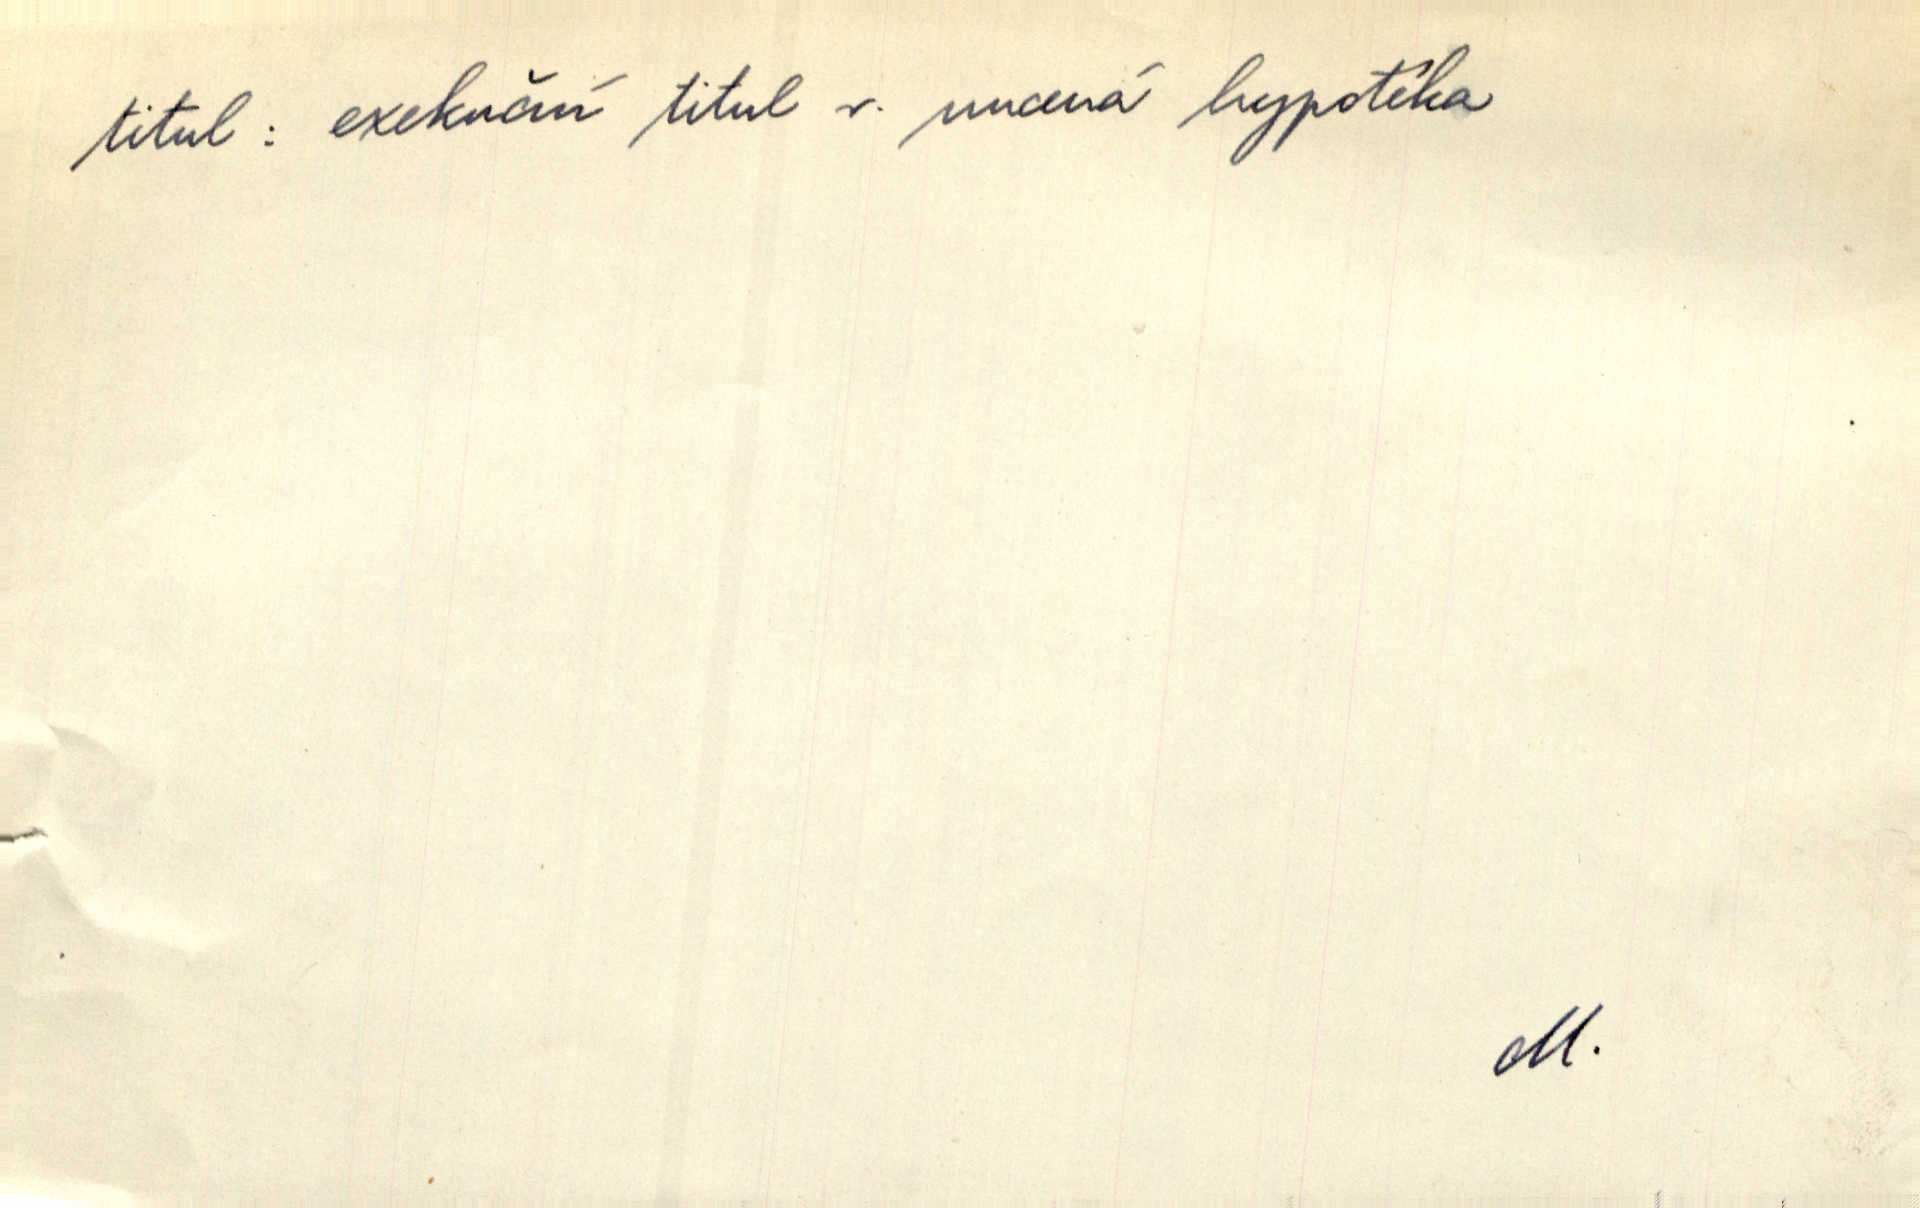 titul: exekuční titul v. nucená hypotéka
M.